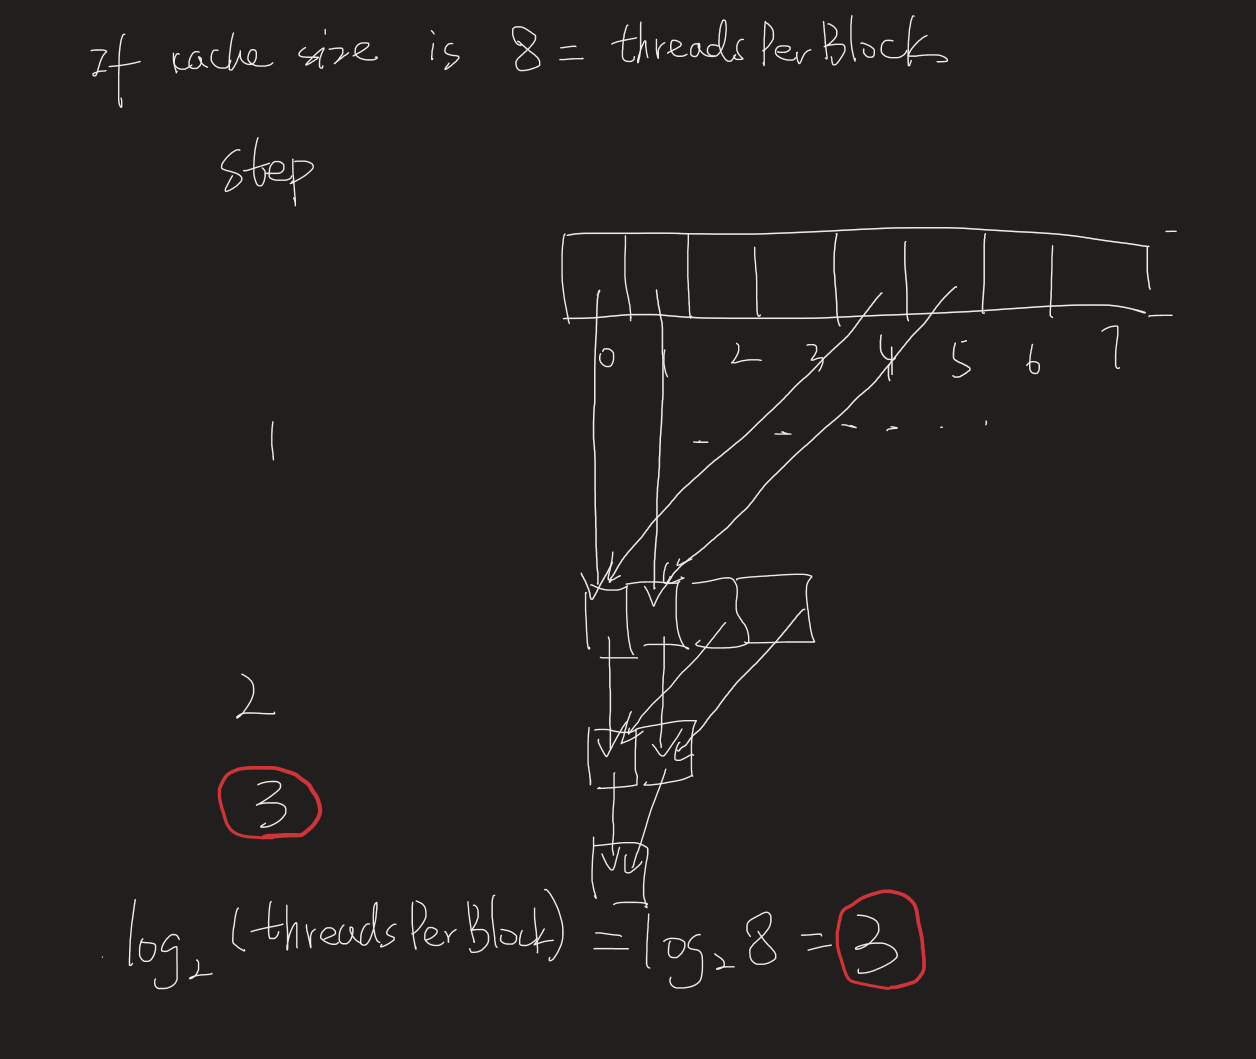 If cache size is 8 = threadsPerBlock
step
0 1 2 3 4 5 6 7
1
2
3
log₂ (threadsPerBlock) = log₂ 8 = 3